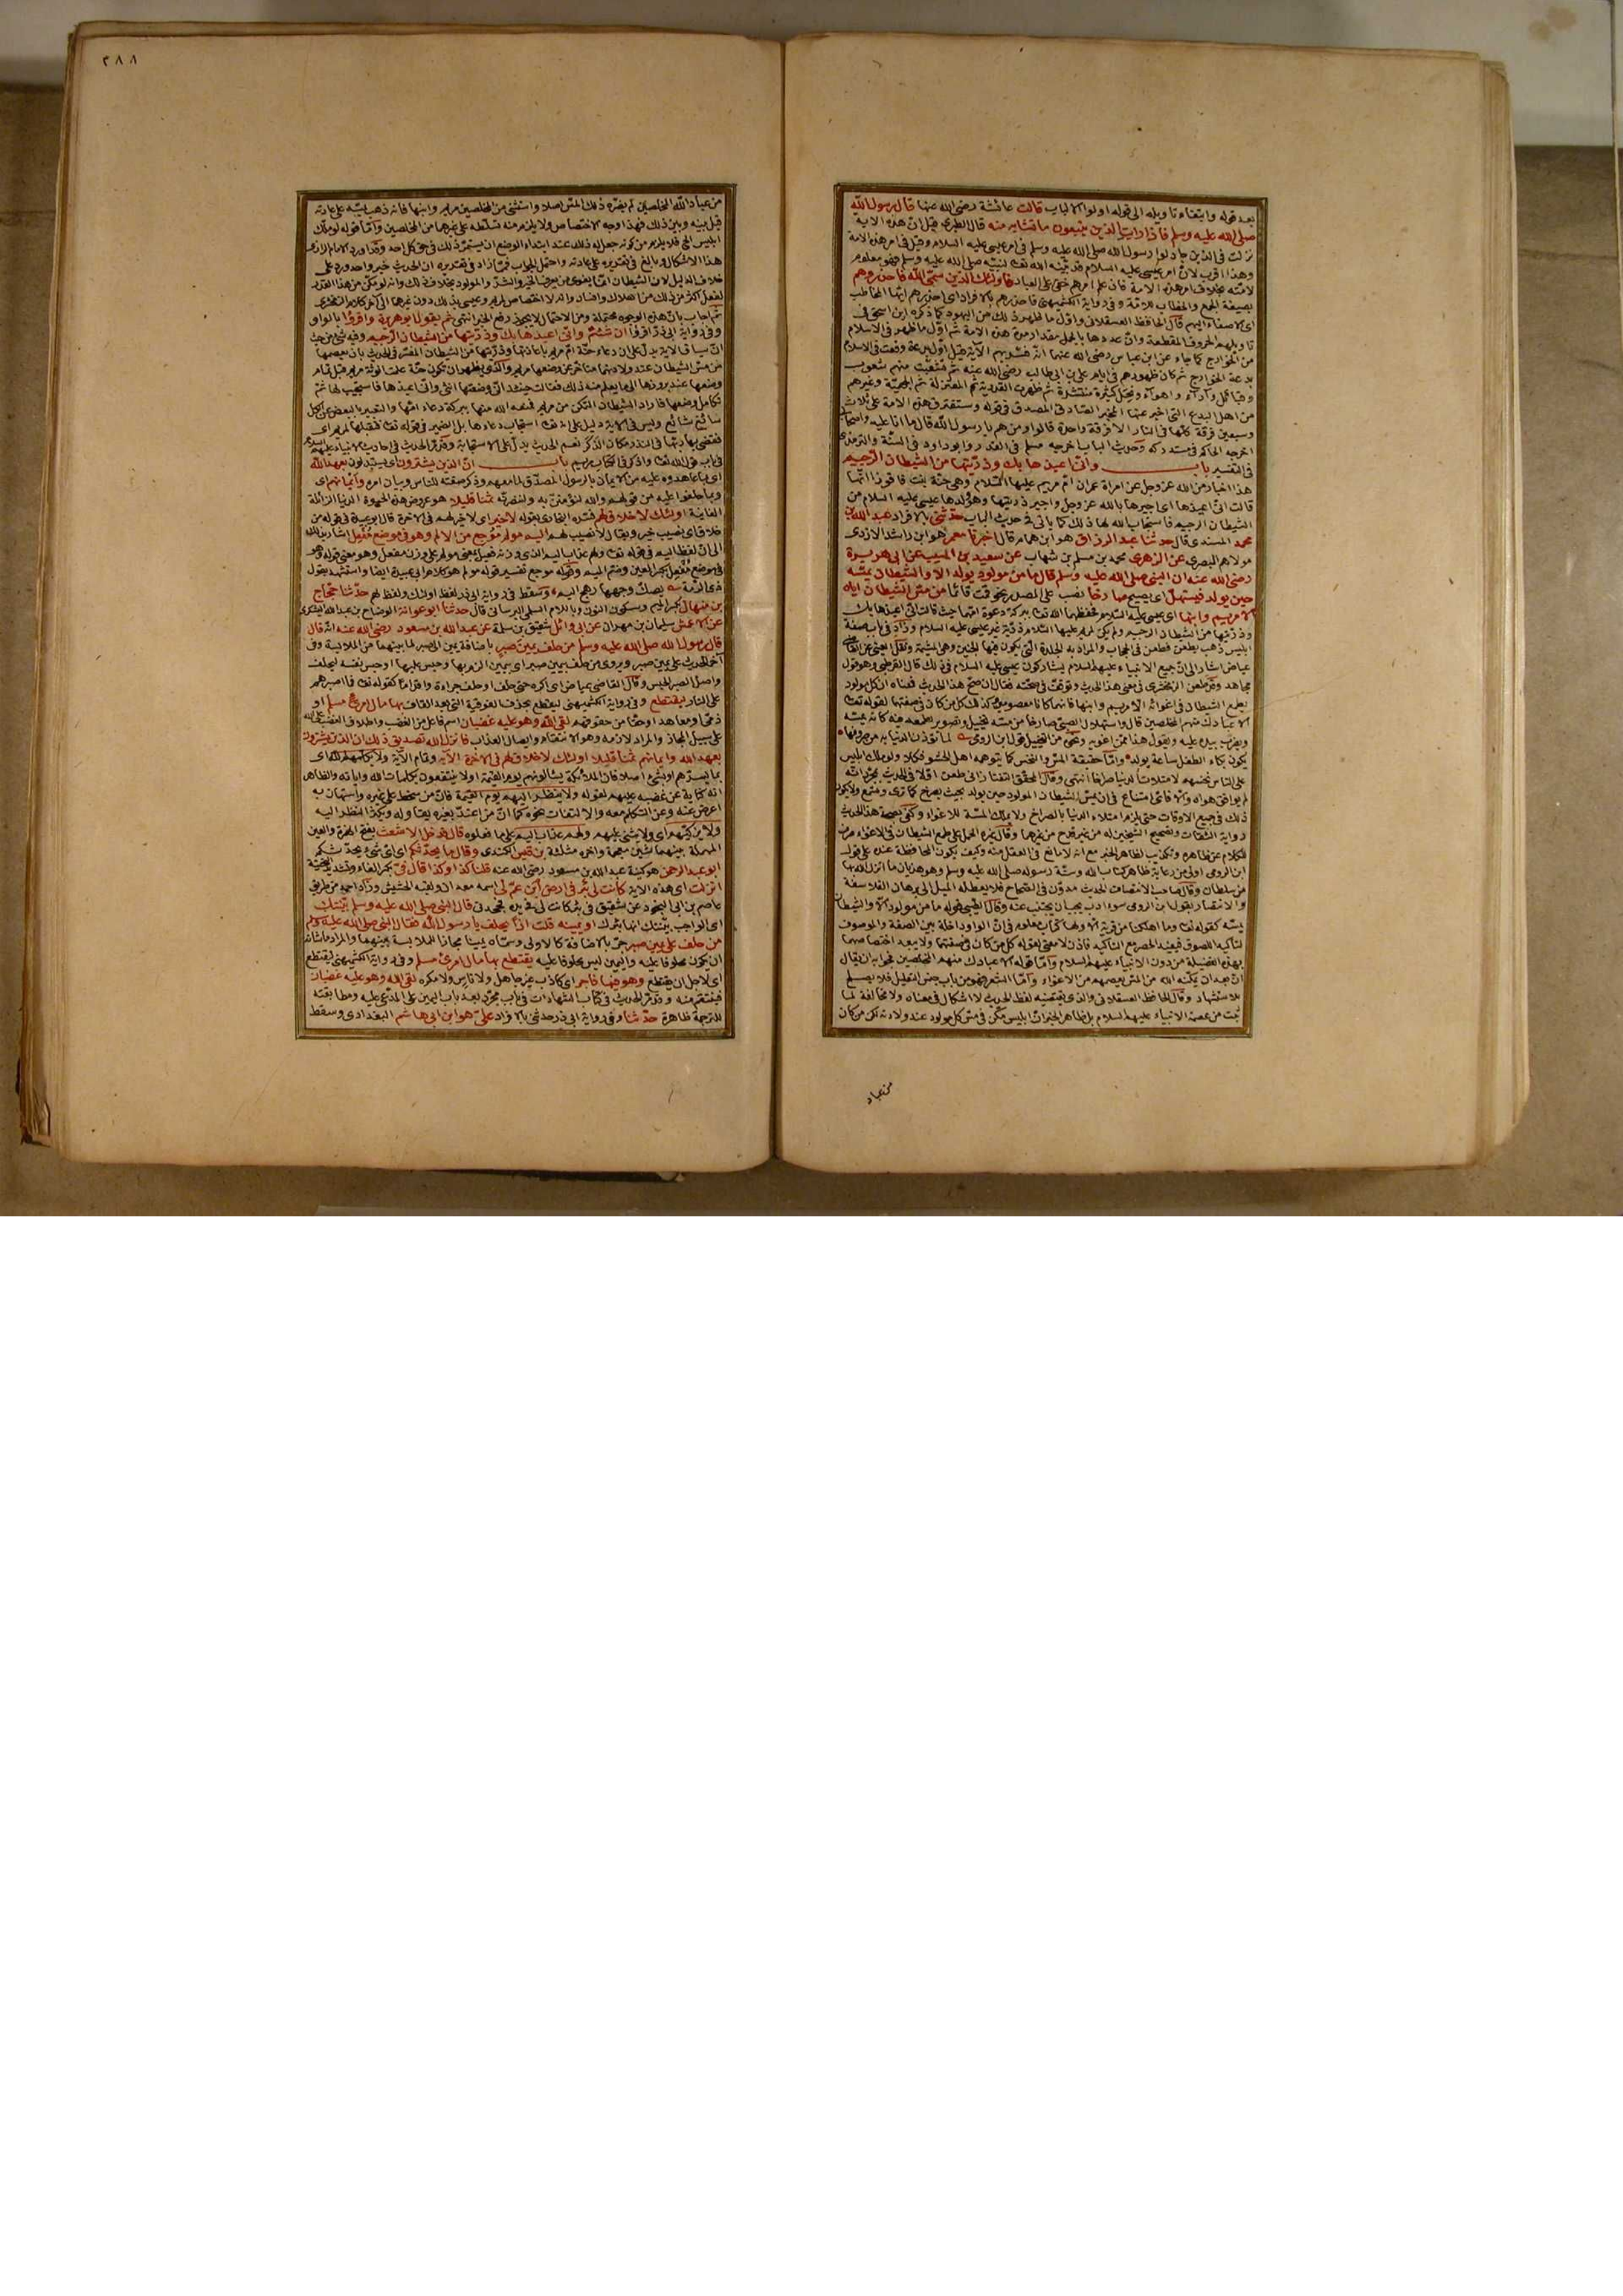 بعد قوله وابتغاء تاويله الى قوله اولوا الالباب قالت عائشة رضى الله عنها قال رسول الله
صلى الله عليه وسلم فاذا رايت الذين يتبعون ما تشابه منه قال الطبرى قيل ان هذه الاية
نزلت فى الذين جادلوا رسول الله صلى الله عليه وسلم فى امر عيسى عليه السلام وقيل فى امر هذه الامة
وهذا اقرب لان امر عيسى عليه السلام قد بينه الله تعالى لنبيه صلى الله عليه وسلم فهو معلوم
لامته بخلاف امر هذه الامة فان علم امرهم خفى على العباد فاولئك الذين سمى الله فاحذروهم
بصيغة الجمع والخطاب للامة وفى رواية الكشميهنى فاحذرهم بالافراد اى احذرهم ايها المخاطب
اى الاصغاء اليهم قال الحافظ العسقلانى واول ما ظهر ذلك من اليهود كما ذكره ابن اسحق فى
تاويلهم الحروف المقطعة وان عددها بالجمل مقدار مدة هذه الامة ثم اول ما ظهر فى الاسلام
من الخوارج كما جاء عن ابن عباس رضى الله عنهما انه فسر بهم الآية قيل اول بدعة وقعت فى الاسلام
بدعة الخوارج ثم كان ظهورهم فى ايام على بن ابى طالب رضى الله عنه ثم تشعبت منهم شعوب
وقبائل وآراء واهواء ونحل كثيرة منتشرة ثم ظهرت القدرية ثم المعتزلة ثم الجهمية وغيرهم
من اهل البدع التى اخبر عنها المخبر الصادق المصدق فى قوله وستفترق هذه الامة على ثلاث
وسبعين فرقة كلها فى النار الا فرقة واحدة قالوا ومن هم يا رسول الله قال ما انا عليه واصحابى
اخرجه الحاكم فى مستدركه وحديث الباب اخرجه مسلم فى القدر وابو داود فى السنة والترمذى
فى التفسير باب وانى اعيذها بك وذريتها من الشيطان الرجيم
هذا اخبار من الله عز وجل عن امراة عمران ام مريم عليها السلام وهى حنة بنت فاقوذ انها
قالت انى اعيذها اى اجيرها بالله عز وجل واجير ذريتها وهو ولدها عيسى عليه السلام من
الشيطان الرجيم فاستجاب الله لها ذلك كما ياتى فى حديث الباب حدثنى بالافراد عبد الله بن
محمد المسندى قال حدثنا عبد الرزاق هو ابن همام قال اخبرنا معمر هو ابن راشد الازدى
مولاهم البصرى عن الزهرى محمد بن مسلم بن شهاب عن سعيد بن المسيب عن ابى هريرة
رضى الله عنه ان النبى صلى الله عليه وسلم قال ما من مولود يولد الا والشيطان يمسه
حين يولد فيستهل اى يصيح صارخا نصب على المصدر نحو قمت قائما من مس الشيطان اياه
الا مريم وابنها اى عيسى عليه السلام فحفظهما الله تعالى ببركة دعوة امها حيث قالت انى اعيذها بك
وذريتها من الشيطان الرجيم ولم يكن لمريم عليها السلام ذرية غير عيسى عليه السلام وزاد فى باب صفة
ابليس ذهب يطعن فطعن فى الحجاب والمراد به الجلدة التى يكون فيها الجنين وهى المشيمة ونقل العينى عن القاضى
عياض اشار الى ان جميع الانبياء عليهم السلام يشاركون عيسى عليه السلام فى ذلك قال القرطبى وهو قول
مجاهد وقد طعن الزمخشرى فى معنى هذا الحديث وتوقف فى صحته فقال ان صح هذا الحديث فمعناه ان كل مولود
يطمع الشيطان فى اغوائه الا مريم وابنها فانهما كانا معصومين وكذلك كل من كان فى صفتهما لقوله تعالى
الا عبادك منهم المخلصين قال واستهلال الصبى صارخا من مسه تخييل وتصوير لطمعه فيه كانه يمسه
ويضرب بيده عليه ويقول هذا ممن اغويه ونحوه من التخييل قول ابن الرومى لما تؤذن الدنيا به من صروفها
يكون بكاء الطفل ساعة يولد واما حقيقة المس والنخس كما يتوهمه اهل الحشو فكلا ولو ملك ابليس
على الناس نخسهم لامتلات الدنيا صراخا انتهى وقال المحقق التفتازانى طعن اولا فى الحديث بمجرد انه
لم يوافق هواه والا فاى امتناع فى ان يمس الشيطان المولود حين يولد بحيث يصرخ كما ترى وتسمع ولا يكون
ذلك فى جميع الاوقات حتى يلزم امتلاء الدنيا بالصراخ ولا تلك المسة للاغواء وكفى بصحة هذا الحديث
رواية الثقات وتصحيح الشيخين له من غير قدح من غيرهما
من سلطان وقال صاحب الانتصاف الحديث مدون فى الصحاح فلا يعطله الميل الى ترهات الفلاسفة
والانتصار بقول ابن الرومى سوء ادب يجب ان يجتنب عنه وقال الطيبى قوله ما من مولود الا والشيطان
يمسه كقوله تعالى وما اهلكنا من قرية الا ولها كتاب معلوم فى ان الواو داخلة بين الصفة والموصوف
لتاكيد اللصوق فيفيد الحصر مع التاكيد فاذن لا معنى لقوله كل من كان فى صفتهما ولا يبعد اختصاصهما
بهذه الفضيلة من دون الانبياء عليهم السلام واما قوله الا عبادك منهم المخلصين فجوابه ان يقال
اى بعد ان يمكنه الله من المس يعصمهم من الاغواء واما الشعر فهو من باب حسن التعليل فلا يصلح
للاستشهاد وقال الحافظ العسقلانى والذى يقتضيه لفظ الحديث لا اشكال فى معناه ولا مخالفة لما
ثبت من عصمة الانبياء عليهم السلام بل ظاهر الخبر ان ابليس ممكن فى مس كل مولود عند ولادته لكن من كان
من عباد
٢٨٨
من عباد الله المخلصين لم يضره ذلك المس اصلا واستثنى من المخلصين مريم وابنها فانه ذهب يمسه على عادته
فحيل بينه وبين ذلك فهذا وجه الاختصاص ولا يلزم منه تسلطه على غيرهما من المخلصين واما قوله لو ملك
ابليس الخ فلا يلزم من كونه جعل له ذلك عند ابتداء الوضع ان يستمر ذلك فى حق كل احد وقد اورد الامام الرازى
هذا الاشكال وبالغ فى تقريره على عادته واحتمل الجواب فما زاد فى تقريره ان الحديث خبر واحد ورد على
خلاف الدليل لان الشيطان انما يغوى من يعرف الخير والشر والمولود بخلاف ذلك وانه لو مكن من هذا القدر
لفعل اكثر من ذلك من اهلاك وافساد وانه لا اختصاص لمريم وعيسى بذلك دون غيرهما الى آخر كلام الزمخشرى
ثم اجاب بان هذه الوجوه محتملة ومن الاحتمال لا يجوز دفع الخبر انتهى ثم يقول ابو هريرة واقرؤا بالواو
وفى رواية ابى ذر اقرؤا ان شئتم وانى اعيذها بك وذريتها من الشيطان الرجيم وفيه شئ من حيث
ان سياق الاية يدل على ان دعاء حنة ام مريم باعاذتها وذريتها من الشيطان المفسر فى الحديث بان يعصمها
من مس الشيطان عند ولادتهما متاخر عن وضعها مريم والذى يظهر ان تكون حنة علمت انوثة مريم قبل تمام
وضعها عند بروزها الى ما يعلم منه ذلك فقالت حينئذ انى وضعتها انثى وانى اعيذها فاستجيب لها ثم
تكامل وضعها فاراد الشيطان التمكن من مريم فمنعه الله منها ببركة دعاء امها والتعبير بالبعض عن الكل
سائغ شائع وليس فى الاية دليل على انه تعالى استجاب دعاءها بل الضمير فى قوله تعالى فتقبلها لمريم اى
فرضى بها ربها فى النذر مكان الذكر نعم الحديث يدل على الاستجابة وقد مر الحديث فى احاديث الانبياء عليهم السلام
فى باب قول الله تعالى واذكر فى الكتاب مريم باب ان الذين يشترون اى يستبدلون بعهد الله
اى بما عاهدوه عليه من الايمان بالرسول المصدق لما معهم وذكر صفته للناس وبيان امره وايمانهم اى
وبما حلفوا عليه من قولهم والله لنؤمنن به ولننصرنه ثمنا قليلا هو عروض هذه الحيوة الدنيا الزائلة
الفانية اولئك لا خلاق لهم فسره البخارى بقوله لا خير اى لا خير لهم فى الاخرة قال ابو عبيدة فى قوله من
خلاق اى نصيب خير ويقال لا نصيب لهم اليم مولم موجع من الالم وهو فى موضع مفعل اشار بذلك
الى ان لفظ اليم فى قوله تعالى ولهم عذاب اليم الذى وزنه فعيل بمعنى مولم على وزن مفعل وهو معنى قوله وهو
فى موضع مفعل بكسر العين وضم الميم وقوله موجع تفسير قوله مولم هو كلام ابى عبيدة ايضا واستشهد بقول
ذى الرمة يصك وجهها وهج اليم وسقط فى رواية ابى ذر لفظ اولئك ولفظ لهم حدثنا حجاج
بن منهال بكسر الميم وسكون النون وباللام السلمى البرسانى قال حدثنا ابو عوانة الوضاح بن عبد الله اليشكرى
عن الاعمش سليمان بن مهران عن ابى وائل شقيق بن سلمة عن عبد الله بن مسعود رضى الله عنه انه قال
قال رسول الله صلى الله عليه وسلم من حلف يمين صبر باضافة يمين الى صبر لما بينهما من الملابسة وفى
آخر الحديث على يمين صبر ويروى من حلف بيمين صبر اى بيمين الزم بها وحبس عليها او حبس نفسه ليحلف
واصل الصبر الحبس وقال القاضى عياض اى اكره حتى حلف او حلف جراءة واقداما كقوله تعالى فما اصبرهم
على النار ليقتطع وفى رواية الكشميهنى ليقطع بحذف الفوقية التى بعد القاف بها مال امرئ مسلم او
ذمى او معاهد او حقا من حقوقهم لقى الله وهو عليه غضبان اسم فاعل من الغضب واطلاق الغضب على الله
على سبيل المجاز والمراد لازمه وهو الانتقام وايصال العذاب فانزل الله تصديق ذلك ان الذين يشترون
بعهد الله وايمانهم ثمنا قليلا اولئك لا خلاق لهم فى الاخرة الآية وتمام الآية ولا يكلمهم الله اى
بما يسرهم او بشئ اصلا فان الملائكة يسالونهم يوم القيمة او لا ينتفعون بكلمات الله واياته والظاهر
انه كناية عن غضبه عليهم لقوله ولا ينظر اليهم يوم القيمة فان من سخط على غيره واستهان به
اعرض عنه وعن التكلم معه والالتفات نحوه كما ان من اعتد بغيره يقاوله ويكثر النظر اليه
ولا يزكيهم اى ولا يثنى عليهم ولهم عذاب اليم على ما فعلوه قال فدخل الاشعث بفتح الهمزة والعين
المهملة بينهما شين معجمة واخره مثلثة بن قيس الكندى وقال ما يحدثكم اى اى شئ يحدثكم
ابو عبد الرحمن هو كنية عبد الله بن مسعود رضى الله عنه قلنا كذا وكذا قال فى بكسر الفاء وتشديد التحتية
انزلت اى هذه الاية كانت لى بئر فى ارض ابن عم لى اسمه معدان ولقبه الجشيش وزاد احمد من طريق
عاصم بن ابى النجود عن شقيق فى بئر كانت لى فى يده فجحدنى قال النبى صلى الله عليه وسلم بينتك
اى الواجب بينتك انها بئرك او يمينه قلت اذا يحلف يا رسول الله فقال النبى صلى الله عليه وسلم
من حلف على يمين صبر جر بالاضافة كالاولى وسماه يمينا مجازا للملابسة بينهما والمراد ما شانه
ان يكون محلوفا عليه واليمين ليس محلوفا عليه يقتطع بها مال امرئ مسلم وفى رواية الكشميهنى ليقتطع
اى لاجل ان يقتطع وهو فيها فاجر اى كاذب غير جاهل ولا ناس ولا مكره لقى الله وهو عليه غضبان
فينتقم منه وقد مر الحديث فى كتاب الشهادات فى باب مجرد بعد باب اليمين على المدعى عليه ومطابقته
للترجمة ظاهرة حدثنا وفى رواية ابى ذر حدثنى بالافراد على هو ابن ابى هاشم البغدادى وسقط